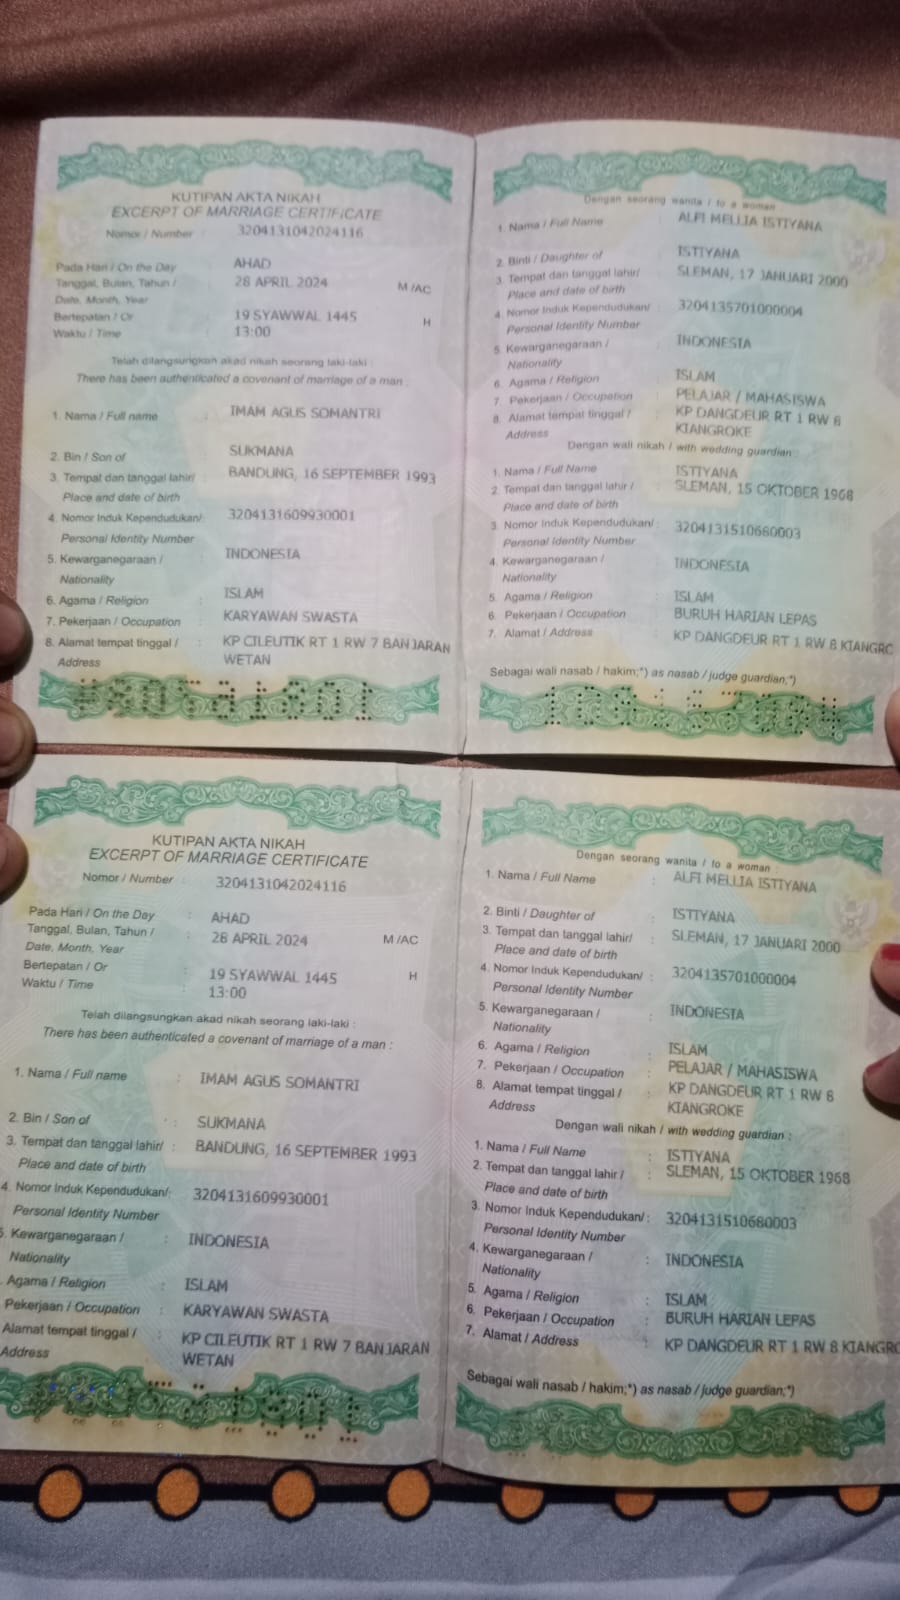 KUTIPAN AKTA NIKAH
EXCERPT OF MARRIAGE CERTIFICATE
Nomor / Number : 3204131042024116
Pada Hari / On the Day : AHAD
Tanggal, Bulan, Tahun / : 28 APRIL 2024 M /AC
Date, Month, Year
Bertepatan / Or : 19 SYAWWAL 1445 H
Waktu / Time : 13:00
Telah dilangsungkan akad nikah seorang laki-laki :
There has been authenticated a covenant of marriage of a man :
1. Nama / Full name : IMAM AGUS SOMANTRI
2. Bin / Son of : SUKMANA
3. Tempat dan tanggal lahir/ : BANDUNG, 16 SEPTEMBER 1993
Place and date of birth
4. Nomor Induk Kependudukan/: 3204131609930001
Personal Identity Number
5. Kewarganegaraan / : INDONESIA
Nationality
6. Agama / Religion : ISLAM
7. Pekerjaan / Occupation : KARYAWAN SWASTA
8. Alamat tempat tinggal / : KP CILEUTIK RT 1 RW 7 BANJARAN
Address WETAN
Dengan seorang wanita / to a woman
1. Nama / Full Name : ALFI MELLIA ISTIYANA
2. Binti / Daughter of : ISTIYANA
3. Tempat dan tanggal lahir/ : SLEMAN, 17 JANUARI 2000
Place and date of birth
4. Nomor Induk Kependudukan/ : 3204135701000004
Personal Identity Number
5. Kewarganegaraan / : INDONESIA
Nationality
6. Agama / Religion : ISLAM
7. Pekerjaan / Occupation : PELAJAR / MAHASISWA
8. Alamat tempat tinggal / : KP DANGDEUR RT 1 RW 8
Address KIANGROKE
Dengan wali nikah / with wedding guardian :
1. Nama / Full Name : ISTIYANA
2. Tempat dan tanggal lahir / : SLEMAN, 15 OKTOBER 1968
Place and date of birth
3. Nomor Induk Kependudukan/ : 3204131510680003
Personal Identity Number
4. Kewarganegaraan / : INDONESIA
Nationality
5. Agama / Religion : ISLAM
6. Pekerjaan / Occupation : BURUH HARIAN LEPAS
7. Alamat / Address : KP DANGDEUR RT 1 RW 8 KIANGRO
Sebagai wali nasab / hakim;*) as nasab / judge guardian;*)
KUTIPAN AKTA NIKAH
EXCERPT OF MARRIAGE CERTIFICATE
Nomor / Number : 3204131042024116
Pada Hari / On the Day : AHAD
Tanggal, Bulan, Tahun / : 28 APRIL 2024 M /AC
Date, Month, Year
Bertepatan / Or : 19 SYAWWAL 1445 H
Waktu / Time : 13:00
Telah dilangsungkan akad nikah seorang laki-laki :
There has been authenticated a covenant of marriage of a man :
1. Nama / Full name : IMAM AGUS SOMANTRI
2. Bin / Son of : SUKMANA
3. Tempat dan tanggal lahir/ : BANDUNG, 16 SEPTEMBER 1993
Place and date of birth
4. Nomor Induk Kependudukan/: 3204131609930001
Personal Identity Number
5. Kewarganegaraan / : INDONESIA
Nationality
. Agama / Religion : ISLAM
Pekerjaan / Occupation : KARYAWAN SWASTA
Alamat tempat tinggal / : KP CILEUTIK RT 1 RW 7 BANJARAN
Address WETAN
Dengan seorang wanita / to a woman :
1. Nama / Full Name : ALFI MELLIA ISTIYANA
2. Binti / Daughter of : ISTIYANA
3. Tempat dan tanggal lahir/ : SLEMAN, 17 JANUARI 2000
Place and date of birth
4. Nomor Induk Kependudukan/ : 3204135701000004
Personal Identity Number
5. Kewarganegaraan / : INDONESIA
Nationality
6. Agama / Religion : ISLAM
7. Pekerjaan / Occupation : PELAJAR / MAHASISWA
8. Alamat tempat tinggal / : KP DANGDEUR RT 1 RW 8
Address KIANGROKE
Dengan wali nikah / with wedding guardian :
1. Nama / Full Name : ISTIYANA
2. Tempat dan tanggal lahir / : SLEMAN, 15 OKTOBER 1968
Place and date of birth
3. Nomor Induk Kependudukan/ : 3204131510680003
Personal Identity Number
4. Kewarganegaraan / : INDONESIA
Nationality
5. Agama / Religion : ISLAM
6. Pekerjaan / Occupation : BURUH HARIAN LEPAS
7. Alamat / Address : KP DANGDEUR RT 1 RW 8 KIANGRO
Sebagai wali nasab / hakim;*) as nasab / judge guardian;*)